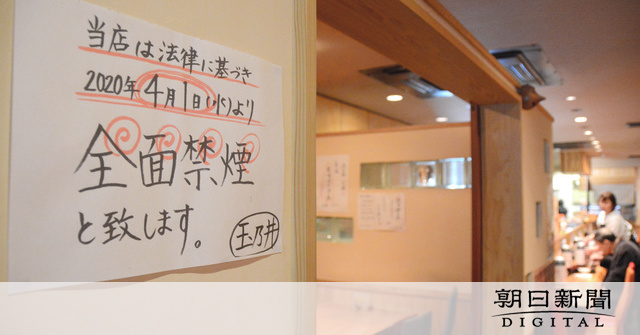 当店は法律に基づき
2020年4月1日(水)より
全面禁煙
と致します。
玉乃井
朝日新聞
DIGITAL